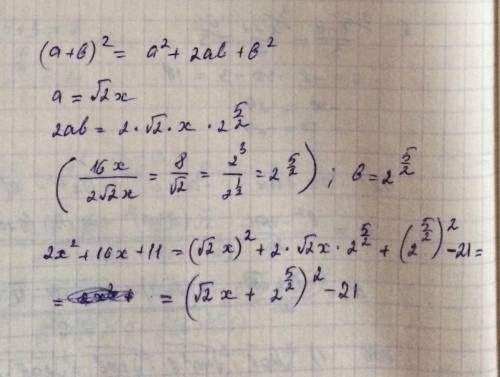 (a+b)² = a² + 2ab + b²
a = √2 x
2ab = 2·√2·x·2^{5/2}
(16x/(2√2x) = 8/√2 = 2³/2^{1/2} = 2^{5/2}) ; b = 2^{5/2}
2x² + 16x + 11 = (√2 x)² + 2·√2x·2^{5/2} + (2^{5/2})² - 21 =
= = (√2 x + 2^{5/2})² - 21